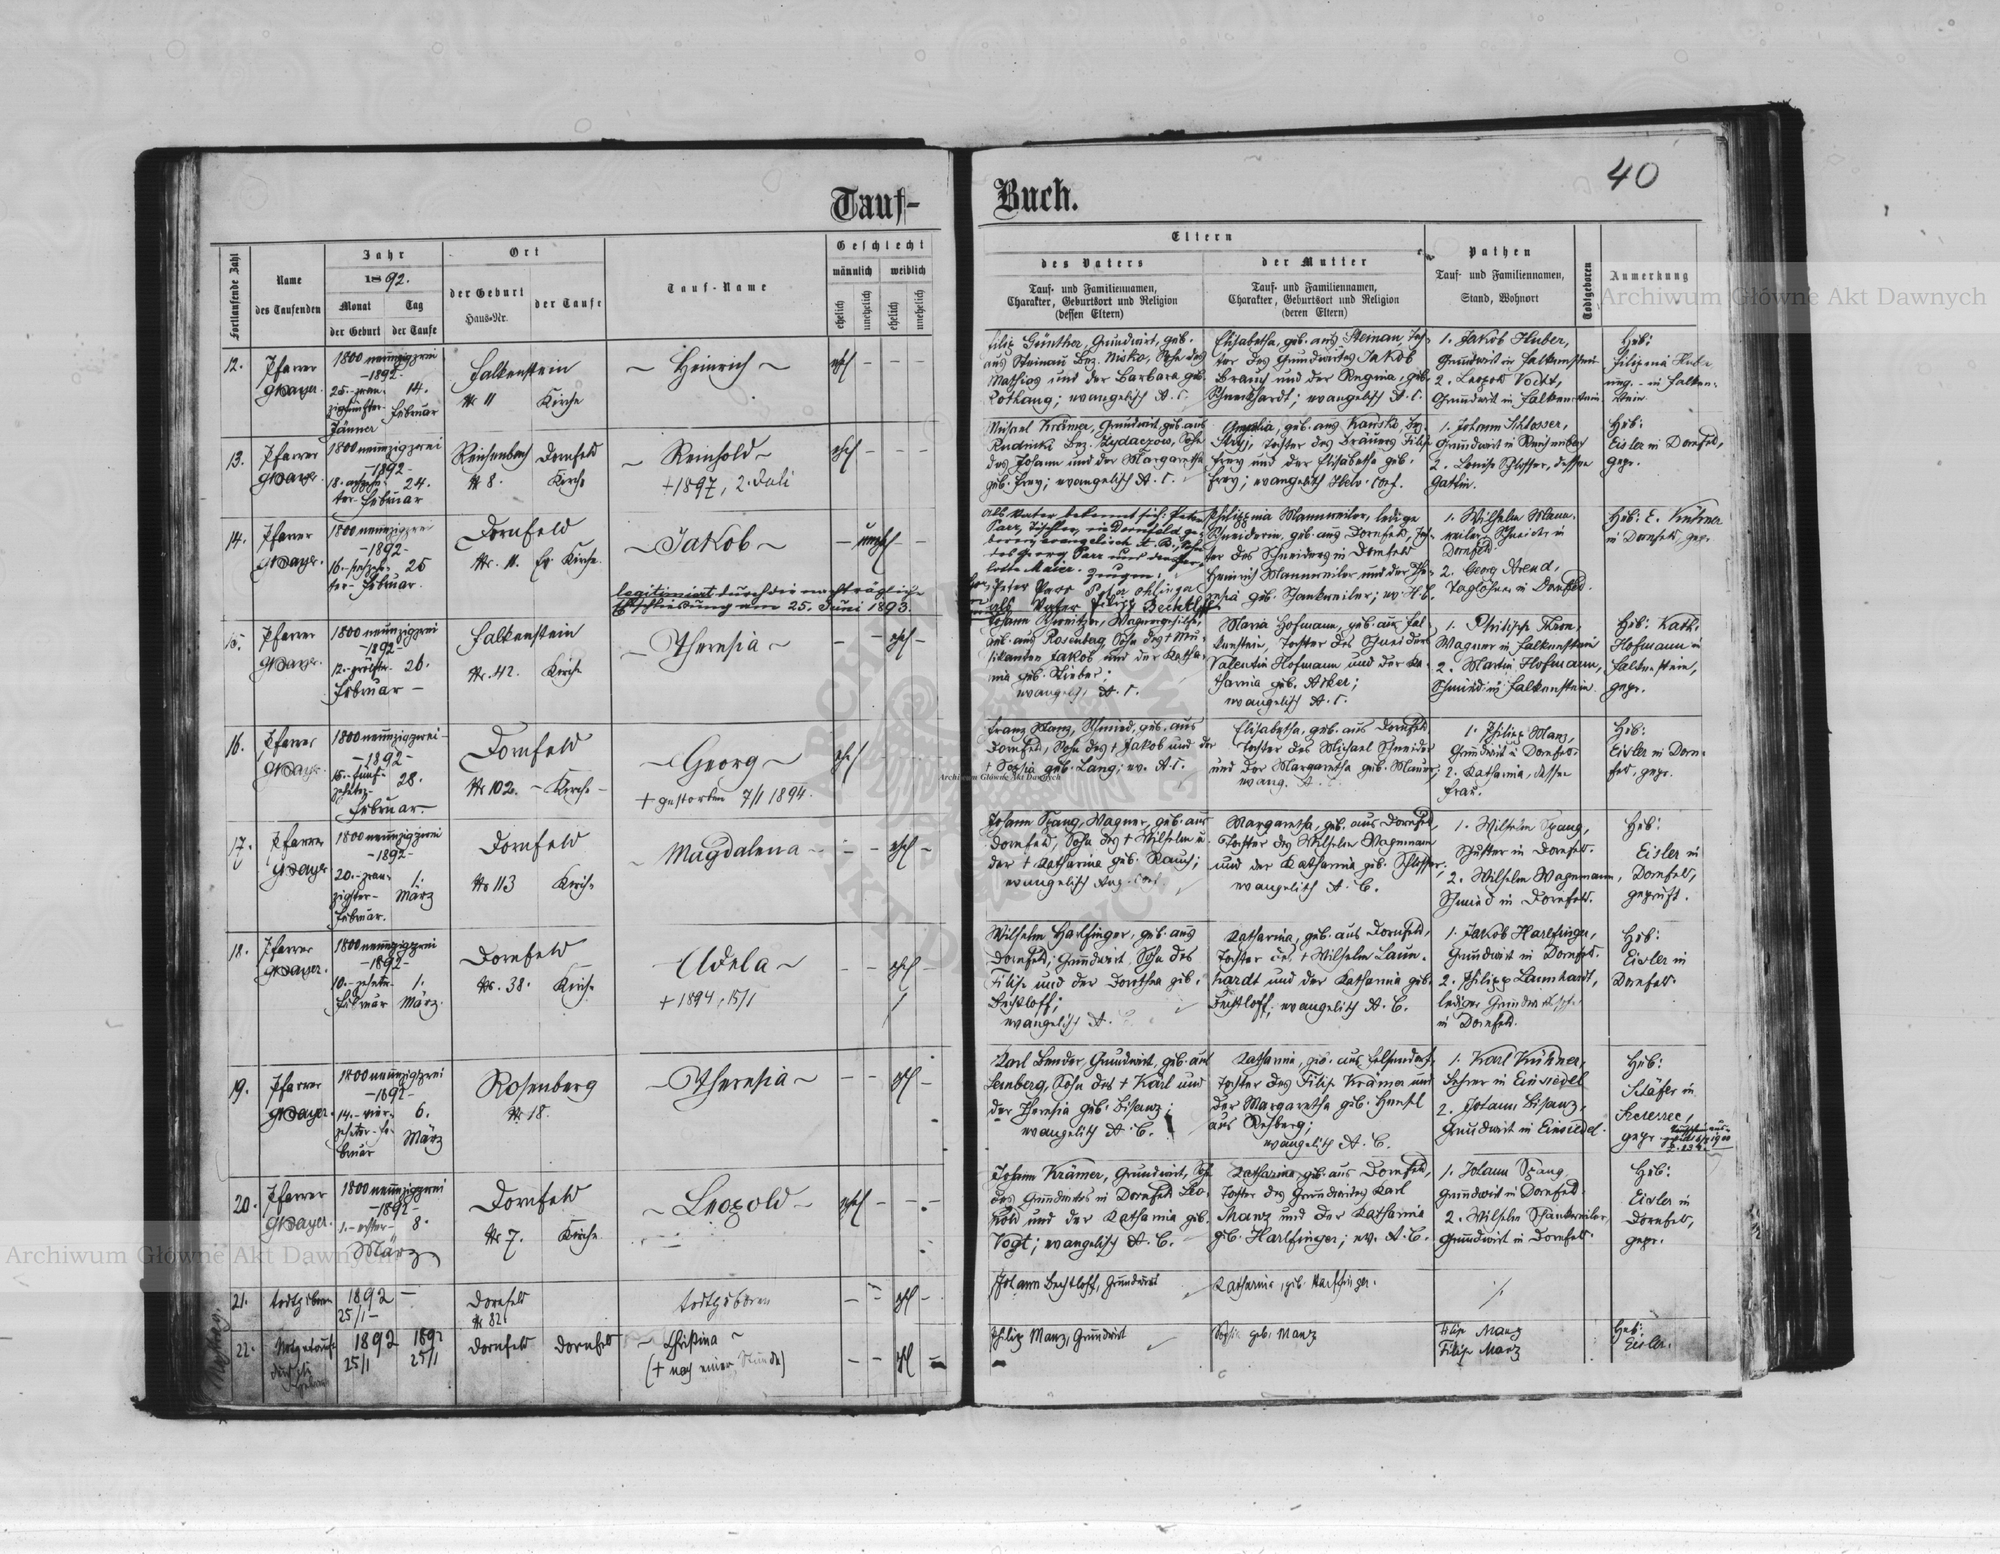 40
Tauf-Buch.
Fortlaufende Zahl
Name
des Taufenden
Jahr
1892.
Monat
der Geburt
Tag
der Taufe
Ort
der Geburt
Haus-Nr.
der Taufe
Tauf-Name
Geschlecht
männlich
weiblich
ehelich
unehelich
ehelich
unehelich
Eltern
des Vaters
Tauf- und Familiennamen,
Charakter, Geburtsort und Religion
(dessen Eltern)
der Mutter
Tauf- und Familiennamen,
Charakter, Geburtsort und Religion
(deren Eltern)
Pathen
Tauf- und Familiennamen,
Stand, Wohnort
Todtgeboren
Anmerkung
12.
Pfarrer
1800 neunzigzwei
-1892-
25.
14.
Februar
Jänner
Falkenstein
Nr 11
Kirche
Heinrich
ehel
Filip Günther, Grundwirt, geb.
aus Steinau Bez. Nisko, Sohn des
Mathias und der Barbara geb.
evangelisch A. C.
Elisabetha, geb. aus Steinau, Toch-
ter des Grundwirtes Jakob
Brauch und der Regina, geb.
evangelisch A. C.
1. Jakob Huber,
Grundwirt in Falkenstein
2. Leopold Vogt,
Grundwirt in Falkenstein
Heb:
in Falken-
stein
13.
Pfarrer
1800 neunzigzwei
-1892-
18.
24.
Februar
Reichenbach
Nr 8.
Dornfeld
Kirche
Reinhold
+ 1897, 2. Juli
ehel
Michael Krämer, Grundwirt, geb. aus
Rudniki Bez. Zydaczow, Sohn
des Johann und der Margaretha
geb. Frey; evangelisch A. C.
geb. aus Bez.
Stryj, Tochter des Bräuers Filip
Frey und der Elisabetha geb.
Frey; evangelisch Helv. Conf.
1. Johann Schlosser,
Grundwirt in Reichenbach
2. Louise Schlosser, dessen
Gattin.
Heb:
Eisler in Dornfeld,
gepr.
14.
Pfarrer
1800 neunzigzwei
-1892-
16.
25
Februar.
Dornfeld
Nr. 11.
Ev. Kirche.
Jakob
unehel
legitimiert durch die nachträgliche
Eheschließung am 25. Juni 1893.
Als Vater bekennt sich: Peter
Parr, Tischler, in Dornfeld ge-
boren, evangelisch A. B., Sohn
des Georg Parr und der
Maier. Zeugen:
Peter Parr
als Vater Filipp Bechtloff
Philippina Mannweiler, ledige
Schneiderin, geb. aus Dornfeld, Toch-
ter des Schneiders in Dornfeld
Heinrich Mannweiler und der
geb. Schankweiler; ev. A. C.
1. Wilhelm Mann-
weiler, Schneider in
Dornfeld.
2. Georg Arend,
Taglöhner in Dornfeld.
Heb: E.
in Dornfeld, gepr.
15.
Pfarrer
1800 neunzigzwei
-1892-
12.
26.
Februar
Falkenstein
Nr. 42.
Kirche
Theresia
ehel
Johann Wagnergehilfe,
geb. aus Rosenberg, Sohn des + Mu-
sikanten Jakob und der Katha-
rina geb. Stieber;
evangelisch A. C.
Maria Hofmann, geb. aus Fal-
kenstein, Tochter des Schneiders
Valentin Hofmann und der Ka-
tharina geb.
evangelisch A. C.
1.
Wagner in Falkenstein
2. Martin Hofmann,
Schmied in Falkenstein.
Heb: Kath.
Hofmann in
Falkenstein,
gepr.
16.
Pfarrer
1800 neunzigzwei
-1892-
15.-fünf-
zehnter-
28.
Februar
Dornfeld
Nr 102.
Kirche
Georg
+ gestorben 7/1 1894.
ehel
Franz Manz, Schmied, geb. aus
Dornfeld, Sohn des + Jakob und der
+ Sophia geb. Lang; ev. A. C.
Elisabetha, geb. aus Dornfeld,
Tochter des Michael Schneider
und der Margaretha geb. Maurer;
evang. A.
1. Philipp Manz,
Grundwirt in Dornfeld.
2. Katharina, dessen
Frau.
Heb:
Eisler in Dorn-
feld, gepr.
17.
Pfarrer
1800 neunzigzwei
-1892-
20.-zwan-
zigster-
Februar.
1.
März
Dornfeld
Nr 113
Kirche
Magdalena
ehel
Johann Spang, Wagner, geb. aus
Dornfeld, Sohn des + Wilhelm u.
der + Katharina geb. Rauch;
evangelisch Aug. Conf.
Margaretha, geb. aus Dornfeld,
Tochter des Wilhelm Wagemann
und der Katharina geb. Schlosser;
evangelisch A. C.
1. Wilhelm Spang,
Schuster in Dornfeld.
2. Wilhelm Wagemann,
Schmied in Dornfeld.
Heb:
Eisler in
Dornfeld,
geprüft.
18.
Pfarrer
1800 neunzigzwei
-1892-
10.-zehnter-
Februar
1.
März.
Dornfeld
Nr. 38.
Kirche
Adela
+ 1894, 15/1
ehel
Wilhelm Harlfinger, geb. aus
Dornfeld, Grundwirt, Sohn des
Filipp und der Dorothea geb.
Bechtloff;
evangelisch A.
Katharina, geb. aus Dornfeld,
Tochter des + Wilhelm Laun-
hardt und der Katharina geb.
Bechtloff; evangelisch A. C.
1. Jakob Harlfinger,
Grundwirt in Dornfeld.
2. Philipp Launhardt,
lediger
in Dornfeld.
Heb:
Eisler in
Dornfeld.
19.
Pfarrer
1800 neunzigzwei
-1892-
14.-vier-
zehnter-Fe-
bruar
6.
März
Rosenberg
Nr 18.
Theresia
ehel
Karl Bender, Grundwirt, geb. aus
Lemberg, Sohn des + Karl und
der Theresia geb. Bisanz;
evangelisch A. C.
Katharina, geb. aus Felsendorf,
Tochter des Filip Krämer und
der Margaretha geb. Hensel
aus Rehberg;
evangelisch A. C.
1. Karl Kühner,
Lehrer in Einsiedel
2. Johann Bisanz,
Grundwirt in Einsiedel.
Heb:
Schäfer in
Szczerzec,
gepr.
20.
Pfarrer
1800 neunzigzwei
-1892-
1.-erster-
8.
März
Dornfeld
Nr 7.
Kirche
Leopold
ehel
Johann Krämer, Grundwirt, Sohn
des Grundwirtes in Dornfeld Leo-
pold und der Katharina geb.
Vogt; evangelisch A. C.
Katharina geb. aus Dornfeld,
Tochter des Grundwirtes Karl
Manz und der Katharina
geb. Harlfinger; ev. A. C.
1. Johann Spang,
Grundwirt in Dornfeld.
2. Wilhelm Schankweiler,
Grundwirt in Dornfeld.
Heb:
Eisler in
Dornfeld,
gepr.
21.
todtgeboren
1892
25/1
Dornfeld
Nr 82
todtgeboren
ehel
Johann Bechtloff, Grundwirt
Katharina, geb. Harlfinger.
22.
1892
25/1
1892
25/1
Dornfeld
Dornfeld
Christina
(+ nach einer Stunde)
ehel
Philip Manz, Grundwirt
geb. Manz
Filip Manz
Filip Manz
Heb:
Eisler.
Archiwum Główne Akt Dawnych
Archiwum Główne Akt Dawnych
Archiwum Główne Akt Dawnych